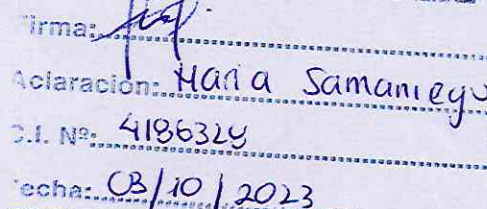 Firma:
Aclaración: Maria Samaniego
C.I. Nº: 4186329
Fecha: 03/10/2023